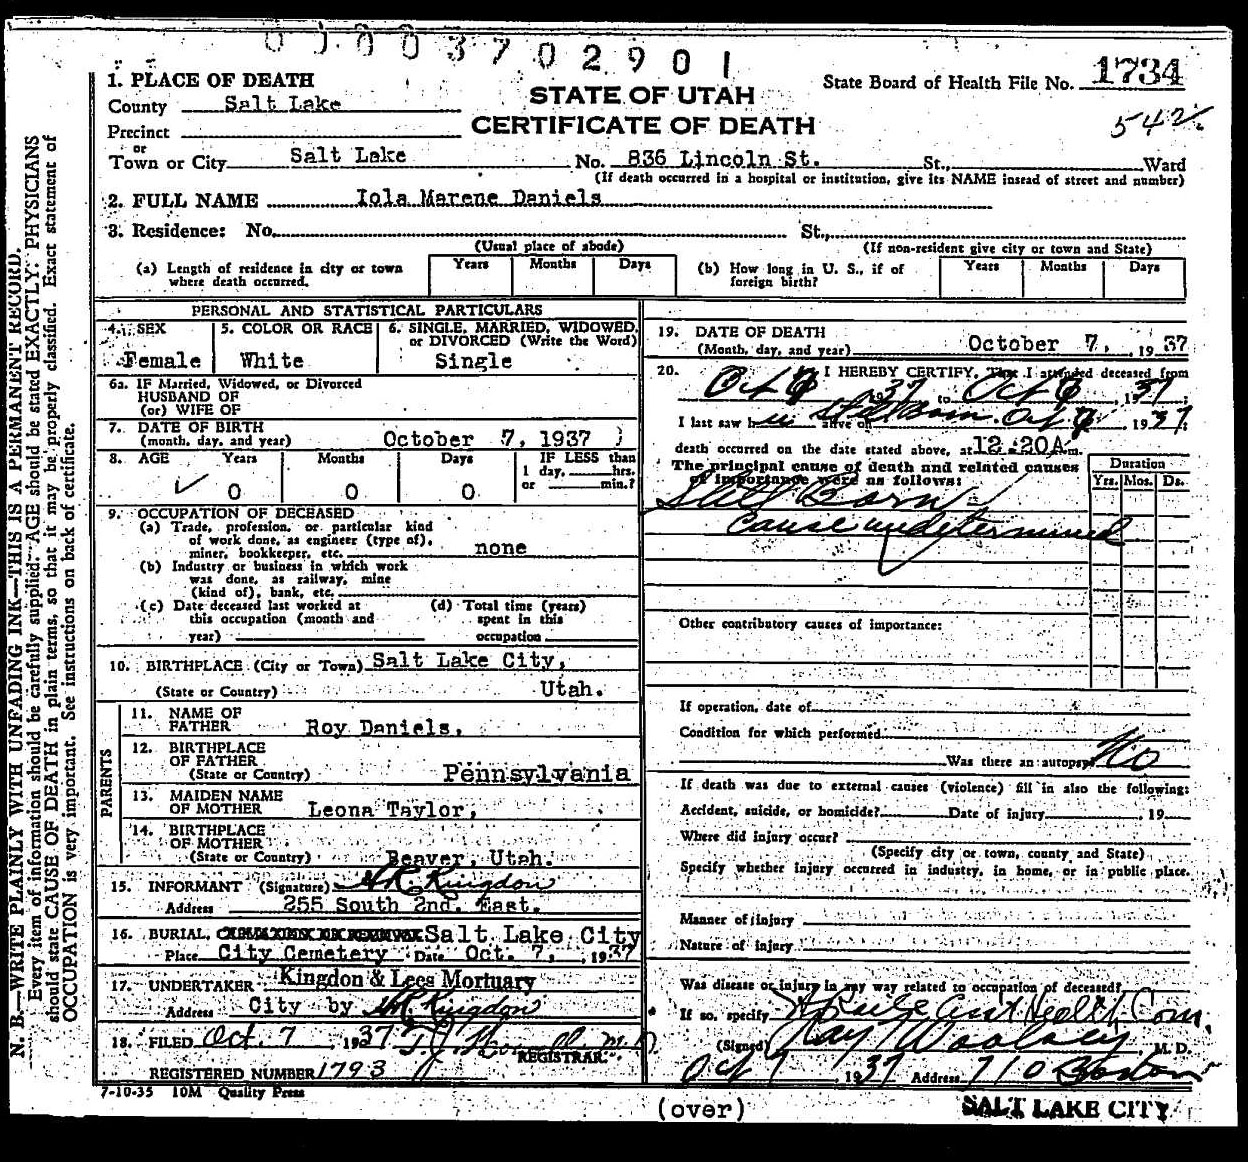 00003702901
1. PLACE OF DEATH
County Salt Lake
Precinct
or
Town or City Salt Lake No. 836 Lincoln St. St., Ward
STATE OF UTAH
CERTIFICATE OF DEATH
State Board of Health File No. 1734
542
(If death occurred in a hospital or institution, give its NAME insead of street and number)
2. FULL NAME Iola Marene Daniels
3. Residence: No. St.,
(Usual place of abode) (If non-resident give city or town and State)
(a) Length of residence in city or town where death occurred. Years Months Days
(b) How long in U. S., if of foreign birth? Years Months Days
PERSONAL AND STATISTICAL PARTICULARS
4. SEX 5. COLOR OR RACE 6. SINGLE, MARRIED, WIDOWED,
or DIVORCED (Write the Word)
Female White Single
6a. IF Married, Widowed, or Divorced
HUSBAND OF
(or) WIFE OF
7. DATE OF BIRTH
(month, day, and year) October 7, 1937
8. AGE Years Months Days IF LESS than
1 day, hrs.
or min.?
✓ 0 0 0
9. OCCUPATION OF DECEASED
(a) Trade, profession, or particular kind
of work done, as engineer (type of),
miner, bookkeeper, etc. none
(b) Industry or business in which work
was done, as railway, mine
(kind of), bank, etc.
(c) Date deceased last worked at
this occupation (month and
year)
(d) Total time (years)
spent in this
occupation
10. BIRTHPLACE (City or Town) Salt Lake City,
(State or Country) Utah.
PARENTS
11. NAME OF
FATHER Roy Daniels,
12. BIRTHPLACE
OF FATHER
(State or Country) Pennsylvania
13. MAIDEN NAME
OF MOTHER Leona Taylor,
14. BIRTHPLACE
OF MOTHER
(State or Country) Beaver, Utah.
15. INFORMANT (Signature) H R Kingdon
Address 255 South 2nd. East.
16. BURIAL, Salt Lake City
Place City Cemetery Date Oct. 7, 1937
17. UNDERTAKER Kingdon & Lees Mortuary
Address City by H R Kingdon
18. FILED Oct. 7 1937 M.D.
REGISTRAR.
REGISTERED NUMBER 1793
7-10-35 10M Quality Press
19. DATE OF DEATH
(Month, day, and year) October 7, 1937
20. Oct 7 I HEREBY CERTIFY, That I attended deceased from
1937 to Oct 7 1937;
I last saw h alive on Still Born. Oct 7 1937;
death occurred on the date stated above, at 12:20A m.
The principal cause of death and related causes
of importance were as follows:
Duration
Yrs. Mos. Ds.
Still Born
Cause undetermined
Other contributory causes of importance:
If operation, date of
Condition for which performed
Was there an autopsy? No
If death was due to external causes (violence) fill in also the following:
Accident, suicide, or homicide? Date of injury 19
Where did injury occur?
(Specify city or town, county and State)
Specify whether injury occurred in industry, in home, or in public place.
Manner of injury
Nature of injury
Was disease or injury in any way related to occupation of deceased?
If so, specify Asst Health Com.
(Signed) Ray Woolsey M. D.
Oct 7 1937 Address 710 Boston
(over)
SALT LAKE CITY
N. B.—WRITE PLAINLY WITH UNFADING INK—THIS IS A PERMANENT RECORD.
Every item of information should be carefully supplied. AGE should be stated EXACTLY. PHYSICIANS
should state CAUSE OF DEATH in plain terms, so that it may be properly classified. Exact statement of
OCCUPATION is very important. See instructions on back of certificate.